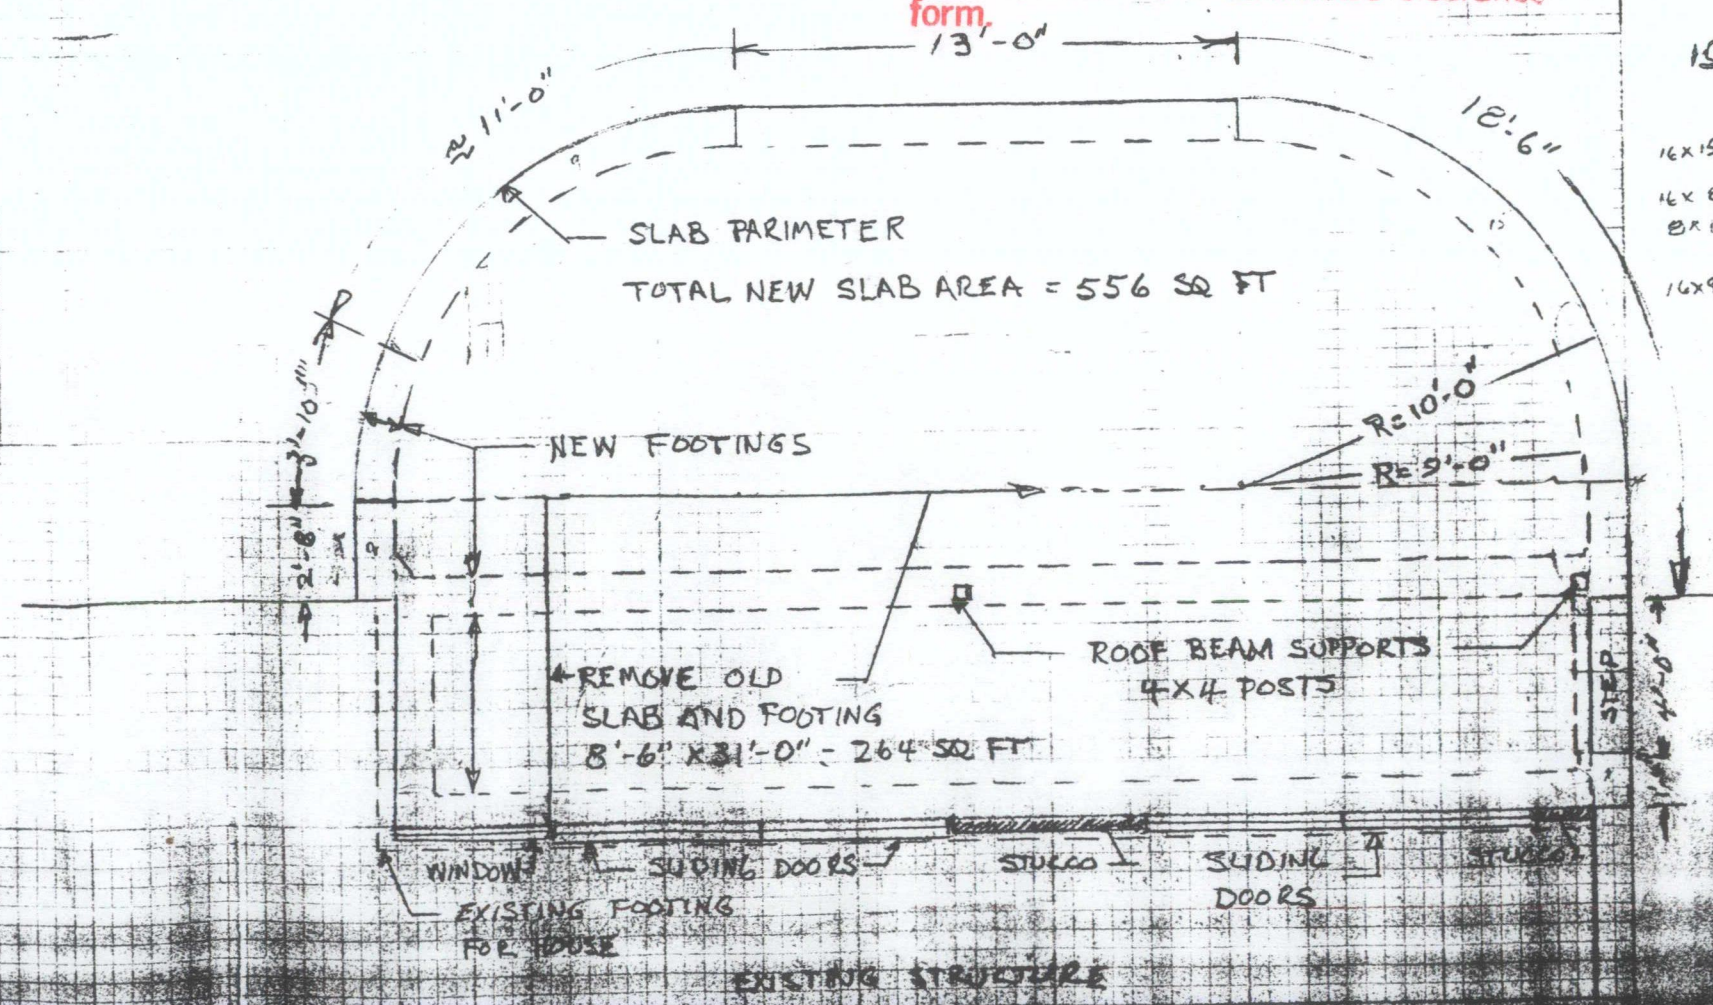 form.
13'-0"
≈ 11'-0"
18'-6"
16×15
SLAB PARIMETER
TOTAL NEW SLAB AREA = 556 SQ FT
R=10'-0"
R=9'-0"
NEW FOOTINGS
2'-8"
REMOVE OLD
SLAB AND FOOTING
8'-6" X 31'-0" = 264 SQ FT
ROOF BEAM SUPPORTS
4X4 POSTS
STEP
WINDOW
SLIDING DOORS
STUCCO
SLIDING
DOORS
STUCCO
EXISTING FOOTING
FOR HOUSE
EXISTING STRUCTURE